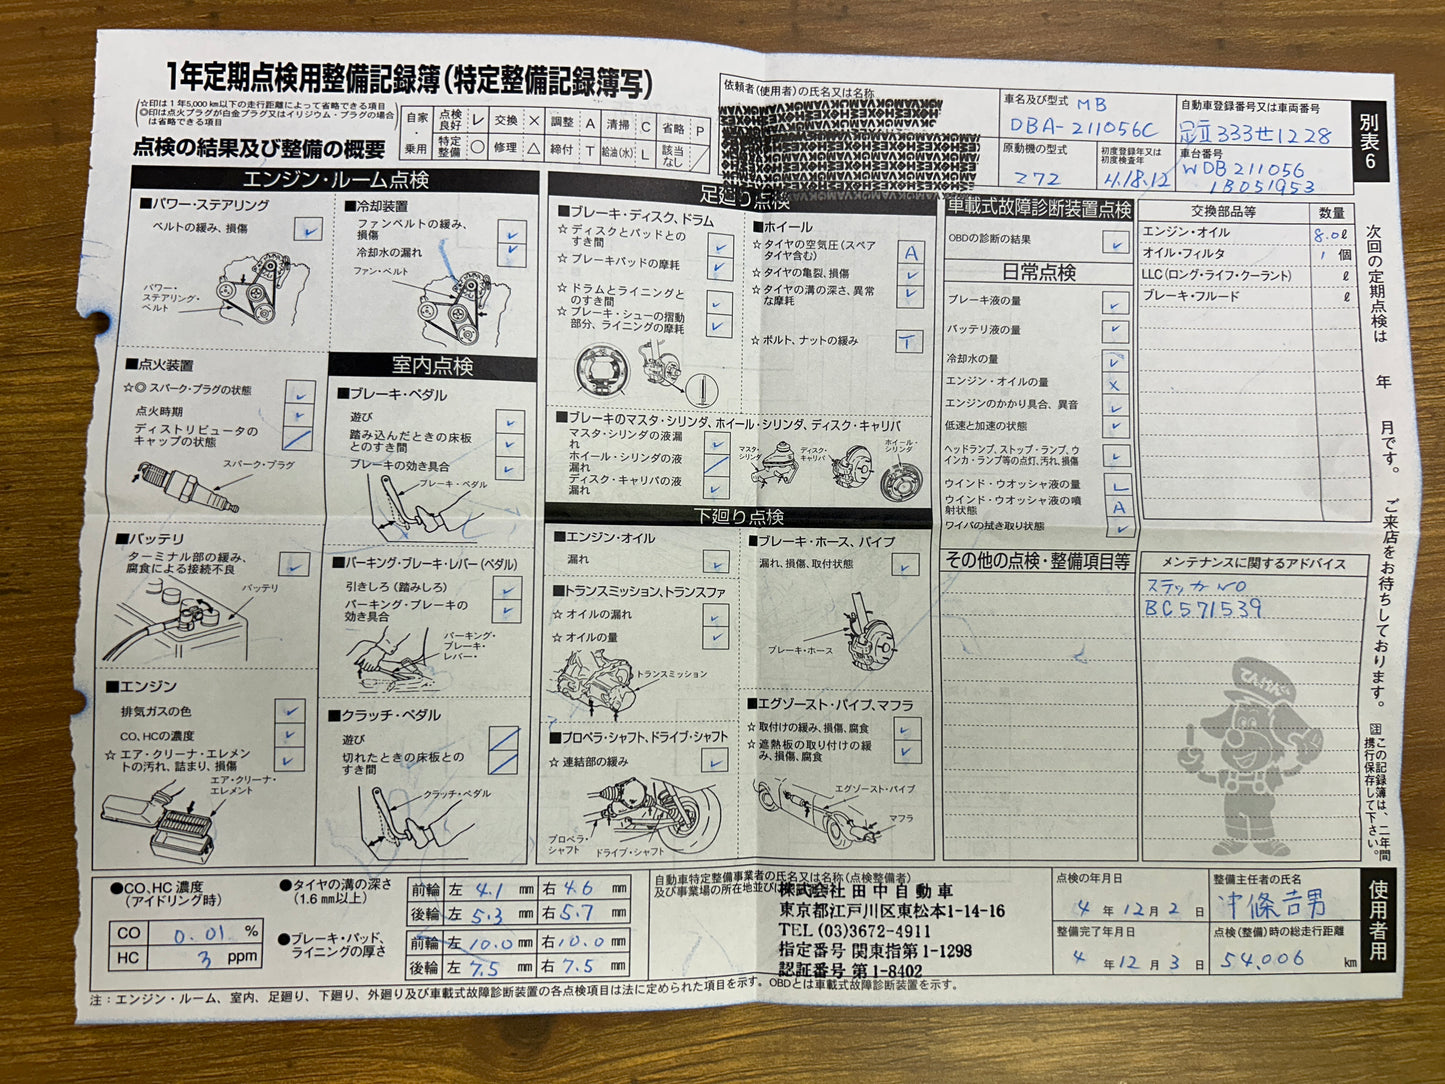 1年定期点検用整備記録簿(特定整備記録簿写)
☆印は1年5,000㎞以下の走行距離によって省略できる項目
◎印は点火プラグが白金プラグ又はイリジウム・プラグの場合は省略できる項目
点検の結果及び整備の概要
自家・乗用
点検良好 レ 交換 × 調整 A 清掃 C 省略 P
特定整備 ○ 修理 △ 締付 T 給油(水) L 該当なし ╱
依頼者(使用者)の氏名又は名称
車名及び型式 MB
DBA-211056C
自動車登録番号又は車両番号
足立333せ1228
原動機の型式
272
初度登録年又は初度検査年
H.18.12
車台番号
WDB211056
1B051953
別表6
エンジン・ルーム点検
■パワー・ステアリング
ベルトの緩み、損傷 レ
パワー・ステアリング・ベルト
■冷却装置
ファンベルトの緩み、損傷 レ
冷却水の漏れ レ
ファン・ベルト
■点火装置
☆◎スパーク・プラグの状態 レ
点火時期 レ
ディストリビュータのキャップの状態 ╱
スパーク・プラグ
■バッテリ
ターミナル部の緩み、腐食による接続不良 レ
バッテリ
■エンジン
排気ガスの色 レ
CO、HCの濃度 レ
☆エア・クリーナ・エレメントの汚れ、詰まり、損傷 レ
エア・クリーナ・エレメント
室内点検
■ブレーキ・ペダル
遊び レ
踏み込んだときの床板とのすき間 レ
ブレーキの効き具合 レ
ブレーキ・ペダル
■パーキング・ブレーキ・レバー(ペダル)
引きしろ(踏みしろ) レ
パーキング・ブレーキの効き具合 レ
パーキング・ブレーキ・レバー・
■クラッチ・ペダル
遊び ╱
切れたときの床板とのすき間 ╱
クラッチ・ペダル
足廻り点検
■ブレーキ・ディスク、ドラム
☆ディスクとパッドとのすき間 レ
☆ブレーキパッドの摩耗 レ
☆ドラムとライニングとのすき間 レ
☆ブレーキ・シューの摺動部分、ライニングの摩耗 レ
■ホイール
☆タイヤの空気圧(スペアタイヤ含む) A
☆タイヤの亀裂、損傷 レ
☆タイヤの溝の深さ、異常な摩耗 レ
☆ボルト、ナットの緩み T
■ブレーキのマスタ・シリンダ、ホイール・シリンダ、ディスク・キャリパ
マスタ・シリンダの液漏れ レ
ホイール・シリンダの液漏れ ╱
ディスク・キャリパの液漏れ レ
マスタ・シリンダ
ディスク・キャリパ
ホイール・シリンダ
下廻り点検
■エンジン・オイル
漏れ レ
■トランスミッション、トランスファ
☆オイルの漏れ レ
☆オイルの量 レ
トランスミッション
■プロペラ・シャフト、ドライブ・シャフト
☆連結部の緩み レ
プロペラ・シャフト
ドライブ・シャフト
■ブレーキ・ホース、パイプ
漏れ、損傷、取付状態 レ
ブレーキ・ホース
■エグゾースト・パイプ、マフラ
☆取付けの緩み、損傷、腐食 レ
☆遮熱板の取り付けの緩み、損傷、腐食 レ
エグゾースト・パイプ
マフラ
車載式故障診断装置点検
OBDの診断の結果 レ
日常点検
ブレーキ液の量 レ
バッテリ液の量 レ
冷却水の量 レ
エンジン・オイルの量 ×
エンジンのかかり具合、異音 レ
低速と加速の状態 レ
ヘッドランプ、ストップ・ランプ、ウインカ・ランプ等の点灯、汚れ、損傷 レ
ウインド・ウオッシャ液の量 L
ウインド・ウオッシャ液の噴射状態 A
ワイパの拭き取り状態 レ
その他の点検・整備項目等
交換部品等 数量
エンジン・オイル 8.0ℓ
オイル・フィルタ 1個
LLC(ロング・ライフ・クーラント) ℓ
ブレーキ・フルード ℓ
メンテナンスに関するアドバイス
ステッカNO
BC571539
てんけんくん
次回の定期点検は 年 月です。 ご来店をお待ちしております。
注 この記録簿は、二年間携行保存して下さい。
●CO、HC濃度(アイドリング時)
CO 0.01 %
HC 3 ppm
●タイヤの溝の深さ(1.6㎜以上)
前輪 左 4.1 ㎜ 右 4.6 ㎜
後輪 左 5.3 ㎜ 右 5.7 ㎜
●ブレーキ・パッド、ライニングの厚さ
前輪 左 10.0 ㎜ 右 10.0 ㎜
後輪 左 7.5 ㎜ 右 7.5 ㎜
自動車特定整備事業者の氏名又は名称(点検整備者)
及び事業場の所在地並びに
株式会社田中自動車
東京都江戸川区東松本1-14-16
TEL (03)3672-4911
指定番号 関東指第1-1298
認証番号 第1-8402
点検の年月日
4年12月2日
整備完了年月日
4年12月3日
整備主任者の氏名
中條吉男
点検(整備)時の総走行距離
54,006 km
使用者用
注:エンジン・ルーム、室内、足廻り、下廻り、外廻り及び車載式故障診断装置の各点検項目は法に定められた項目を示す。OBDとは車載式故障診断装置を示す。